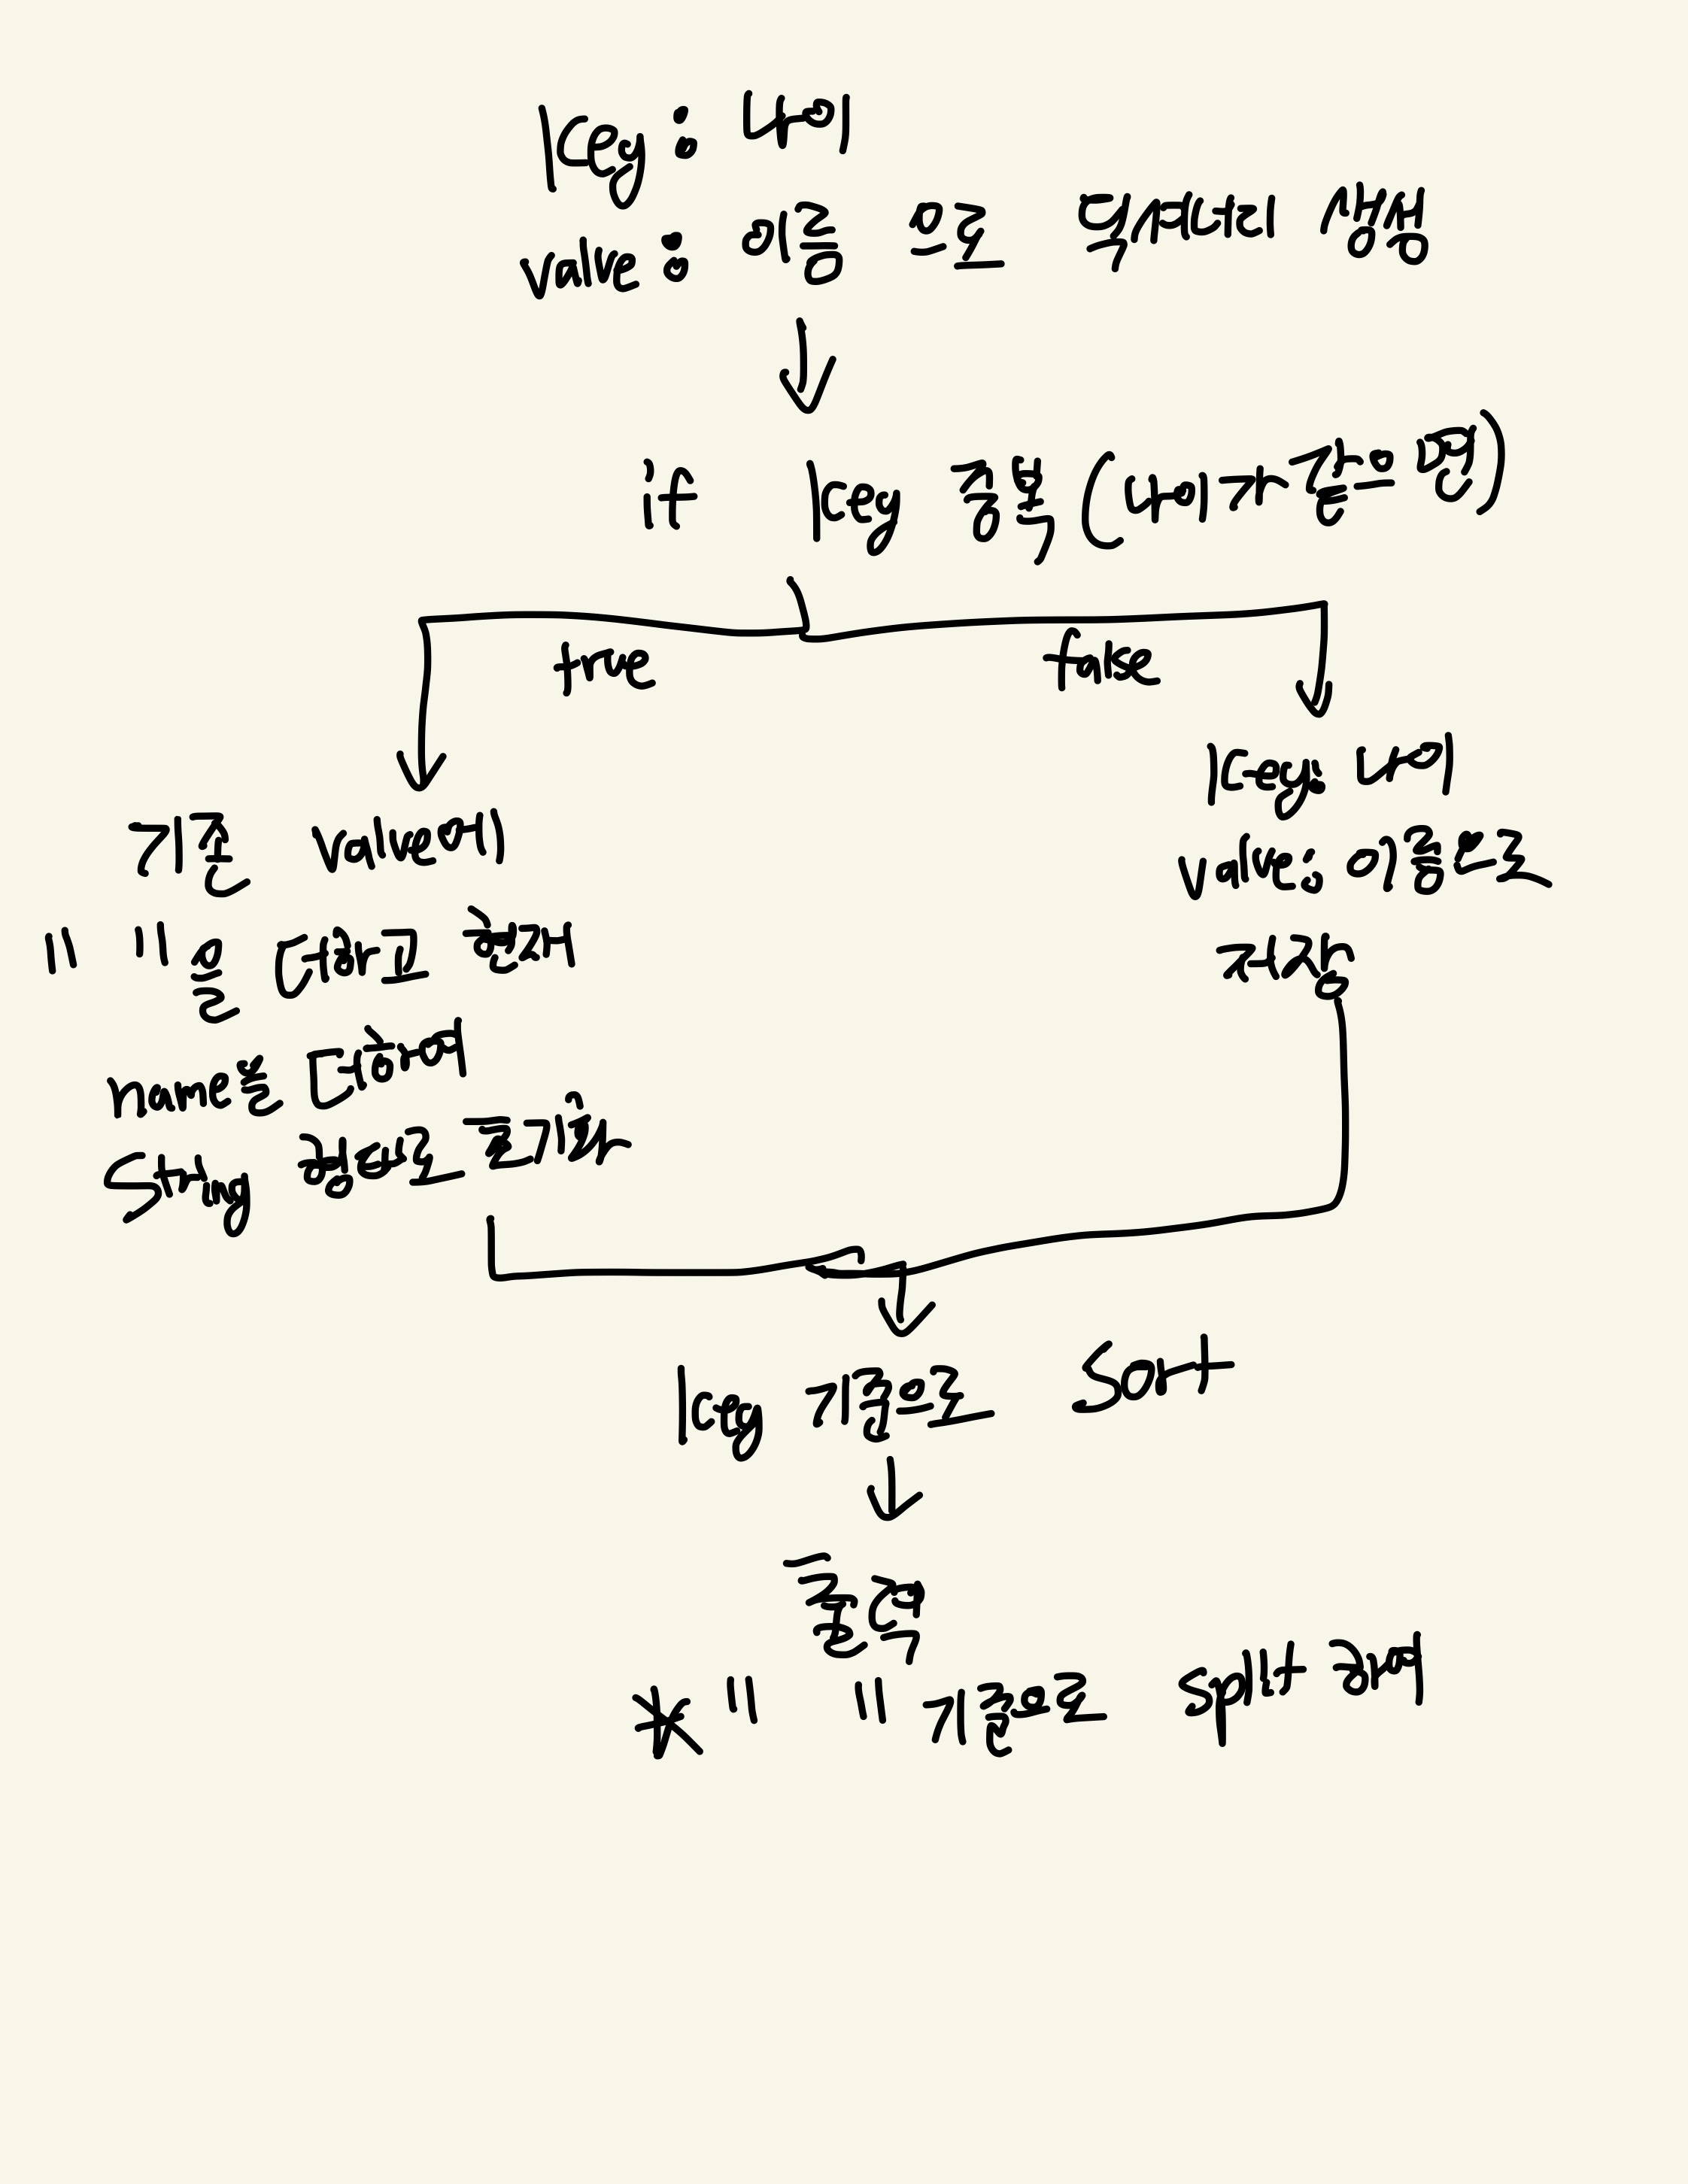 key: 나이
value: 이름 으로 딕셔너리 생성
if key 중복 (나이가 같으면)
true
false
기존 value에
" "을 더하고 현재
name을 더하여
String 형태로 초기화
key: 나이
value: 이름으로
저장
key 기준으로 Sort
출력
* " " 기준으로 split 하여